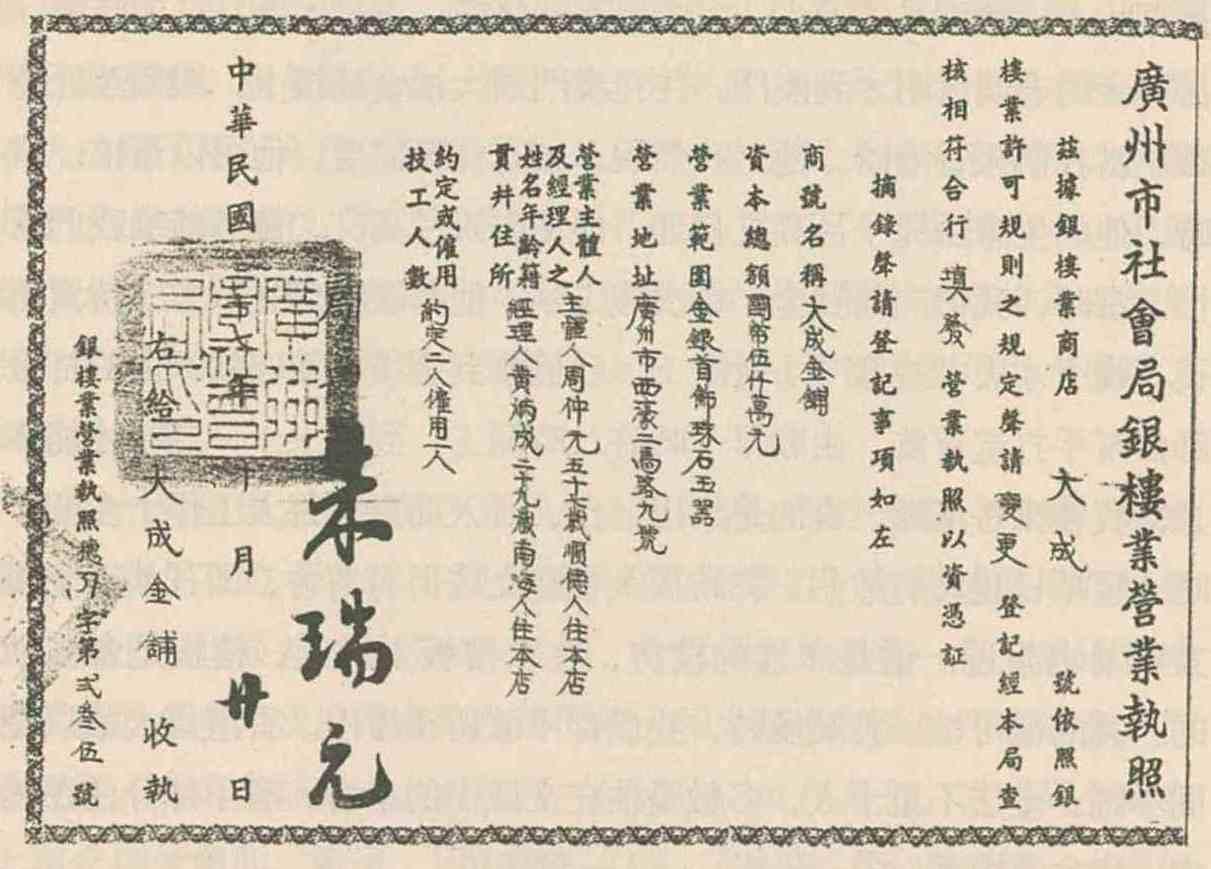 廣州市社會局銀樓業營業執照
茲據銀樓業商店 大成 號依照銀
樓業許可規則之規定聲請 變更 登記經本局查
核相符合行 填發 營業執照以資憑証
摘錄聲請登記事項如左
商號名稱大成金舖
資本總額國幣伍仟萬元
營業範圍金銀首飾珠石玉器
營業地址廣州市西濠二馬路九號
營業主體人
及經理人之
姓名年齡籍
貫并住所
主體人周仲元五十七歲順德人住本店
經理人黃炳成三十九歲南海人住本店
約定或僱用
技工人數
約定二人僱用一人
局
朱瑞元
中華民國 年十月廿日
右給 大成金舖 收執
銀樓業營業執照 字第弍叁伍號